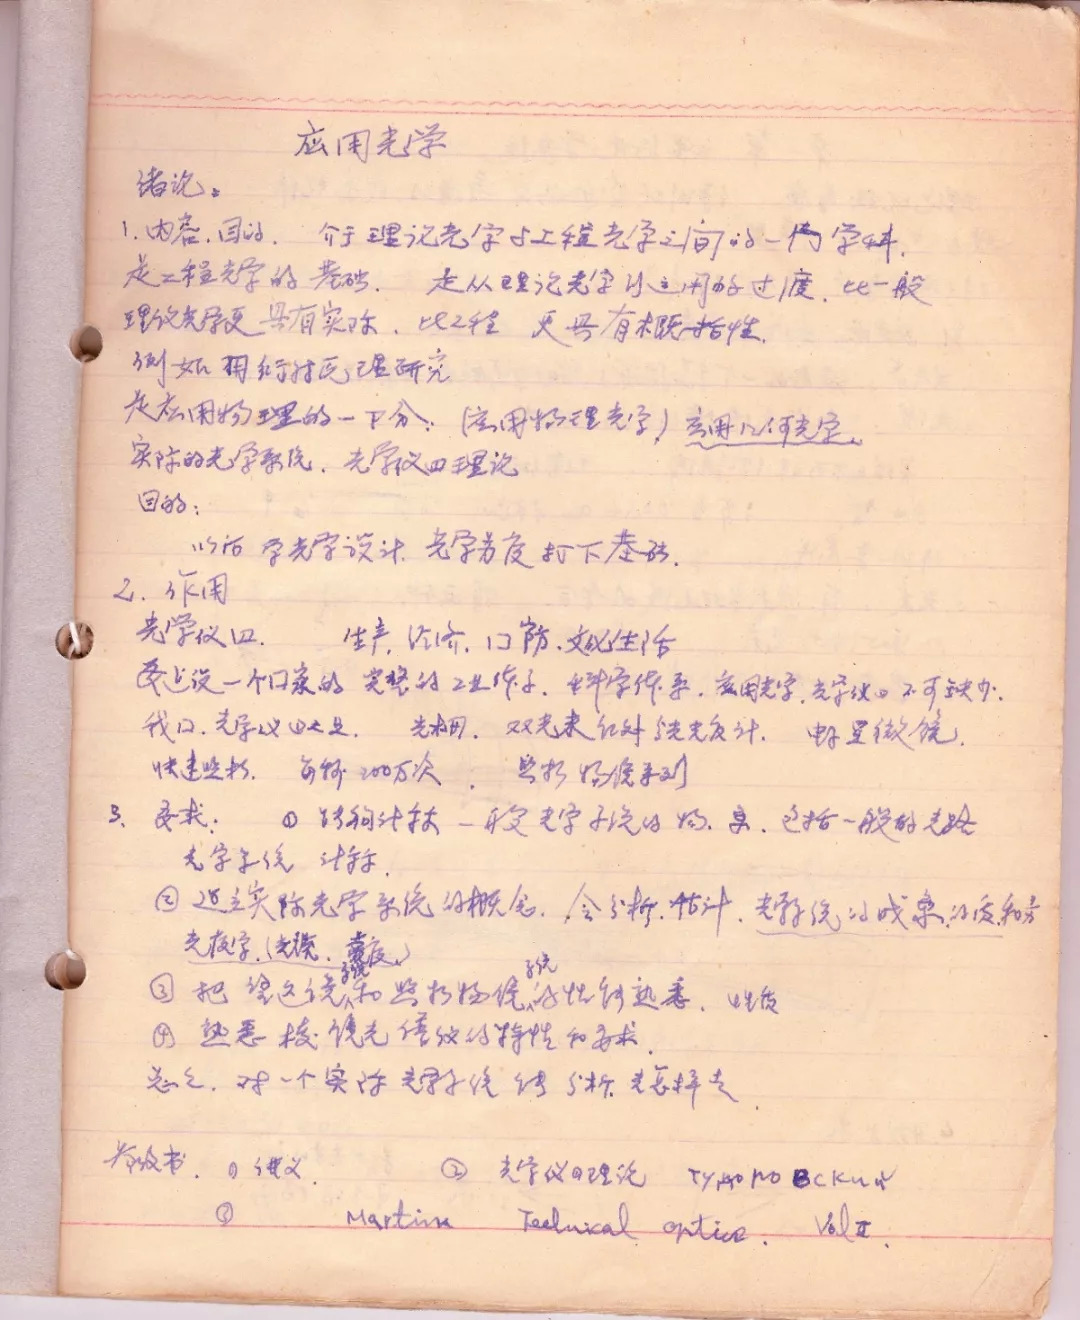 应用光学
绪论:
1. 内容、目的. 介于理论光学与工程光学之间的一门学科,
是工程光学的基础. 是从理论光学到应用的过度. 比一般
理论光学更具有实际, 比工程 更具有概括性.
例如 用衍射原理研究
是应用物理的一部分: (应用物理光学) 应用几何光学、
实际的光学系统. 光学仪口理论
目的:
以后 学光学设计. 光学 打下基础.
2. 作用
光学仪口. 生产, 经济, 口防, 文化生活
要建设一个口家的 完整的工业体系. 科学体系. 应用光学, 光学仪口 不可缺少.
我口. 光学仪口 光栅. 双光束红外 光度计. 电子显微镜.
快速照相. 每秒 200万次. 照相物镜系列
3. 要求: ① 能够计算 一定光学系统的物、象. 包括一般的光路
光学系统 计算.
② 建立实际光学系统的概念. 会分析. 估计. 光学系统的成象的质和
光度学.(光, 度.)
③ 把望远镜系统和照相物镜系统的性能熟悉. 性质
④ 熟悉棱镜光谱仪的特性和要求.
总之. 对一个实际光学系统能分析. 光怎样走
参考书. ① 讲义. ② 光学仪口理论 ТУДОРОВСКИЙ
③ Martin Technical optics. Vol II.